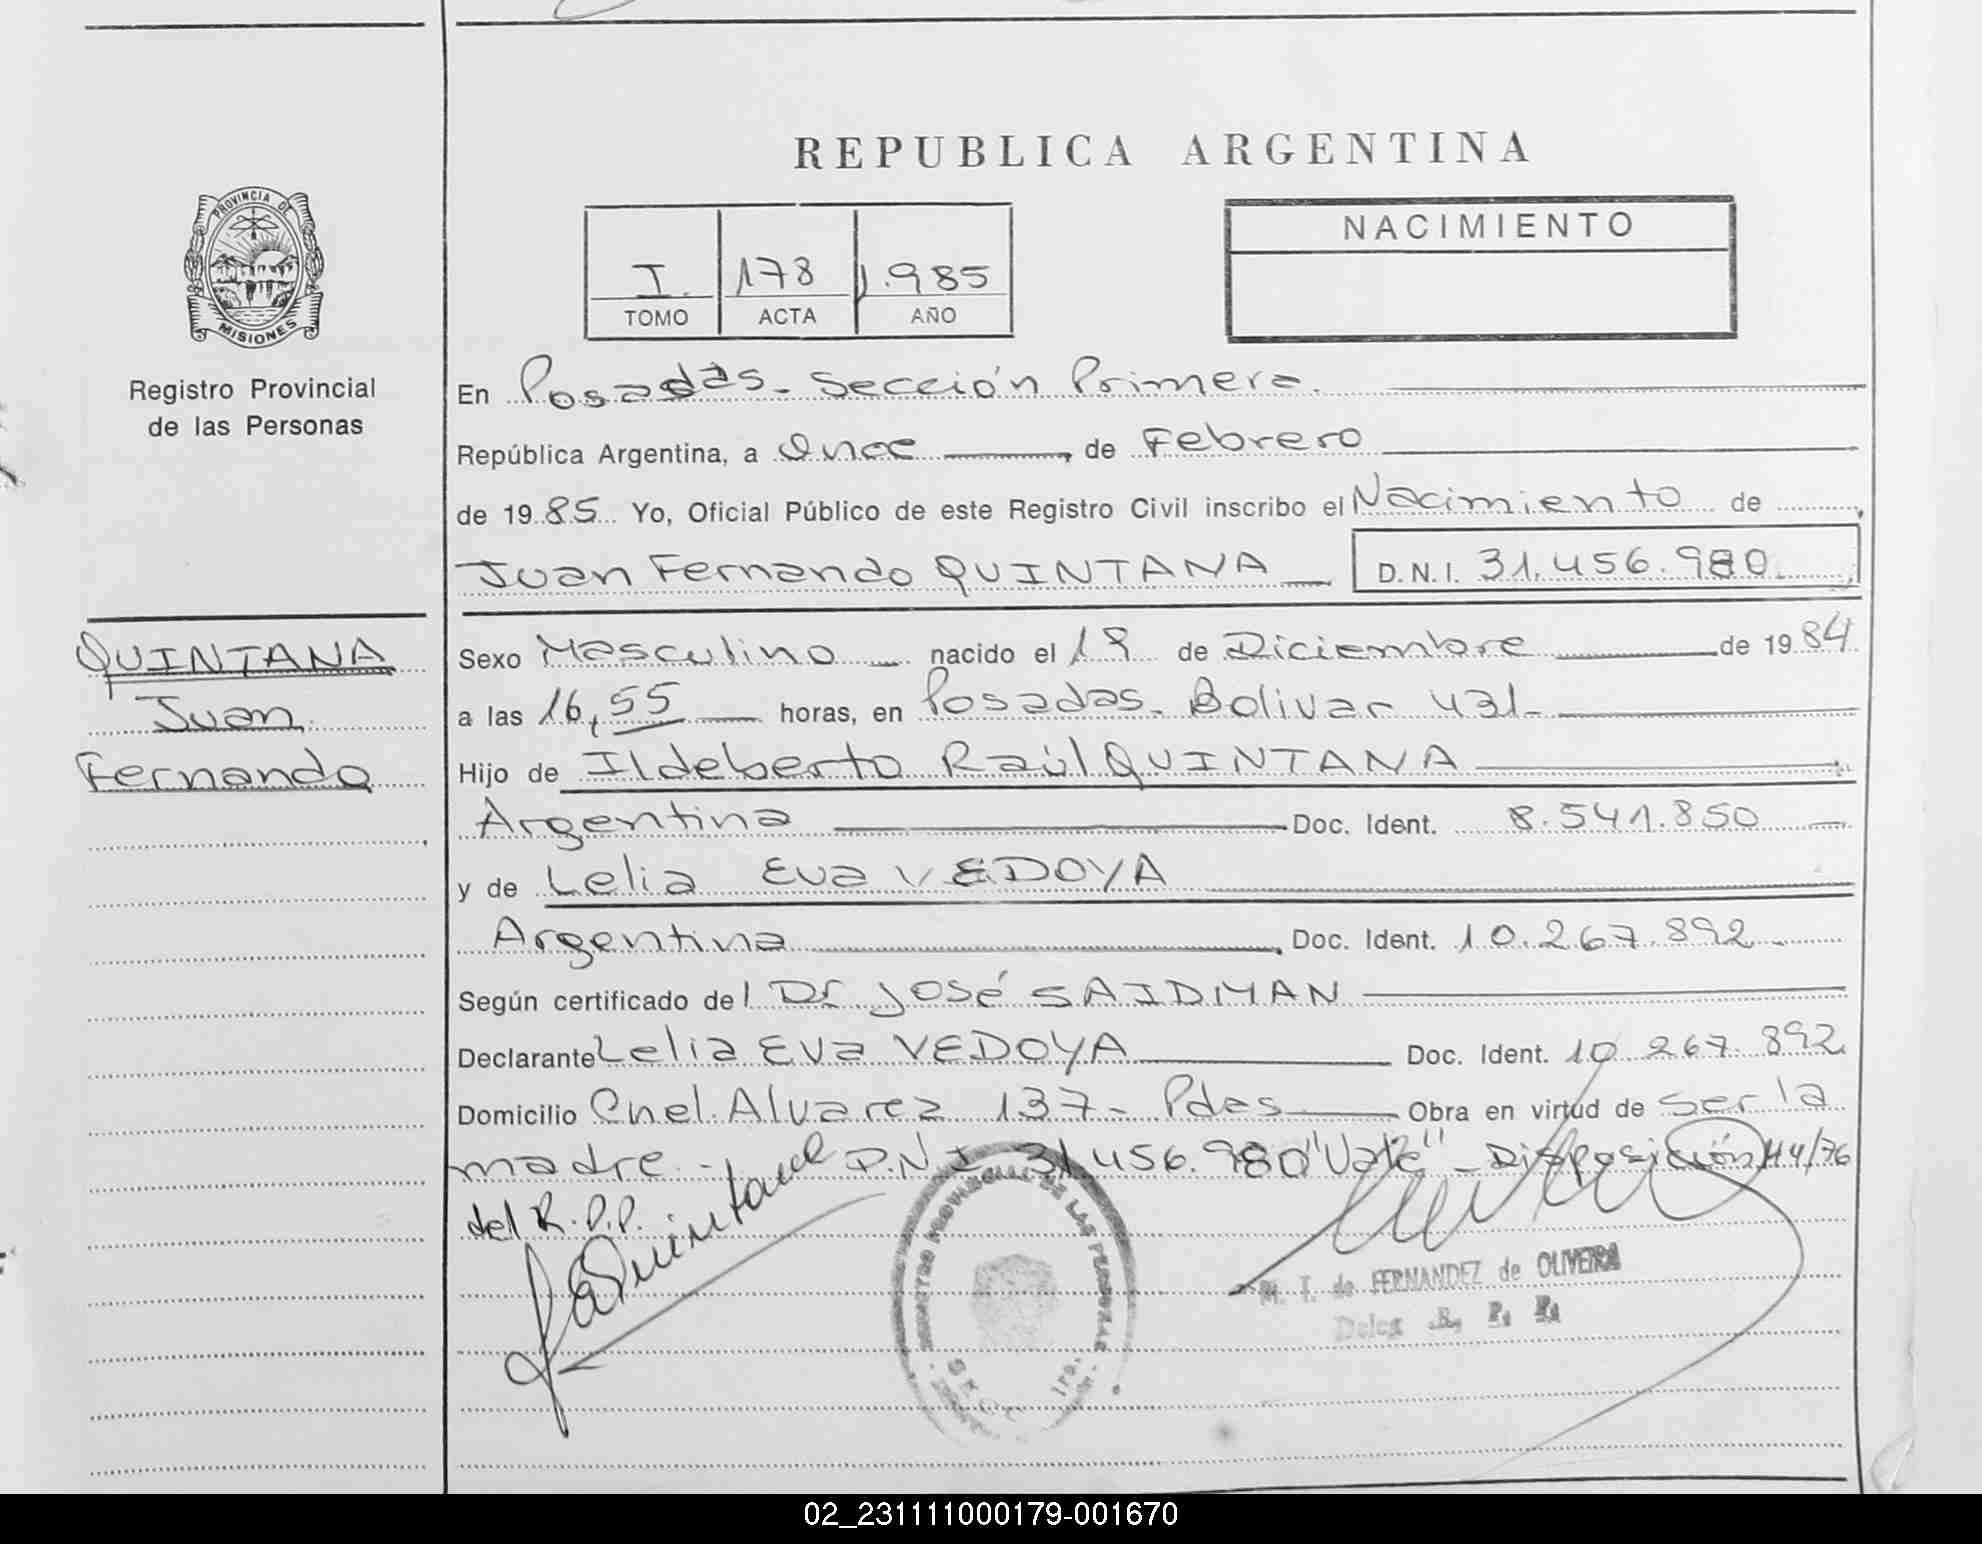 REPUBLICA ARGENTINA
PROVINCIA DE
MISIONES
Registro Provincial
de las Personas
I. 178 1.985
TOMO ACTA AÑO
NACIMIENTO
En Posadas - Sección Primera.
República Argentina, a Once de Febrero
de 1985 Yo, Oficial Público de este Registro Civil inscribo el Nacimiento de
Juan Fernando QUINTANA D.N.I. 31.456.980.
QUINTANA
Juan
Fernando
Sexo Masculino nacido el 19 de Diciembre de 1984
a las 16,55 horas, en Posadas - Bolivar 431-
Hijo de Ildeberto Raúl QUINTANA
Argentina Doc. Ident. 8.541.850
y de Lelia Eva VEDOYA
Argentina Doc. Ident. 10.267.892
Según certificado del Dr José SAIDMAN
Declarante Lelia Eva VEDOYA Doc. Ident. 10.267.892
Domicilio Cnel. Alvarez 137- Pdas Obra en virtud de ser la
madre - D.N.I. 31.456.980 "Vale" - Disposición 114/76
del R.P.P.
REGISTRO PROVINCIAL DE LAS PERSONAS
M. T. de FERNANDEZ de OLIVEIRA
Deleg R. P. P.
02_231111000179-001670